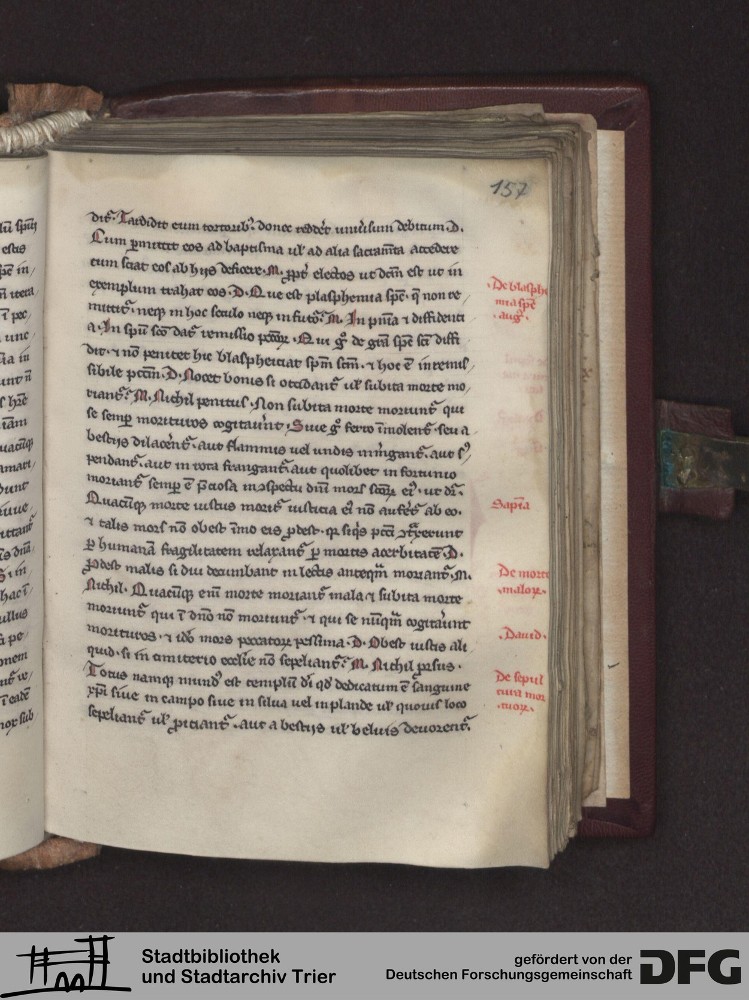 157
dit᷑. Tradidit eum tortorib᷒. donec redderet uniuersum debitum. D.
Cum ꝑmittit eos ad baptisma ul' ad alia sacram̄ta accedere
cum sciat eos ab hijs deficere. M. ꝓpt' electos ut dc̄m est ut in
exemplum trahat eos. D. Que est plasphemia sp̄c. q̄ non re-
mittit᷑. neq in hoc seculo neq in fut'o. M. In pn̄ia ⁊ diffidenti
a. In sp̄u sc̄o dat᷑ remissio pccōꝝ. Qui g̊ de gr̄a sp̄c sc̄i diffi
dit. ⁊ nō penitet hic blasphemat sp̄m sc̄m. ⁊ hoc ē in remis
sibile pcc̄m. D. Nocet bonis si occidant᷑ ul' subita morte mo
riant᷑. M. Nichil penitus. Non subita morte moriunt᷑ qui
se semper morituros cogitauīnt. Siue g̊ ferro īmolent᷑. seu a
bestijs dilacerent᷑. aut flammis uel undis inm̄gant᷑. aut s᷒
pendant᷑. aut in rota frangant᷑. aut quolibet in fortunio
moriant᷑ semper ē p̄ciosa in ꝯspectu dn̄i mors sc̄oꝝ ei᷒. ut dr̄.
Quacūq morte iustus morit᷑ iusticia ei᷒ nō aufert᷑ ab eo.
⁊ talis mors nō obest īmo eis ꝓdest. q̄ siq̄s pcc̄a ꝯtxerunt
ꝑ humanā fragilitatem relaxant᷑ ꝑ mortis acerbitatē. D.
Prodest malis si diu decumbant in lectis anteqm̄ moriant᷑. M.
Nichil. Quacūq eni morte moriant᷑ mala ⁊ subita morte
moriunt᷑ qui ī dn̄o nō moriunt᷑. ⁊ qui se nūqm̄ cogitāunt
morituros. ⁊ idō mors peccatorꝝ pessima. D. Obest iustis ali
quid. si in cimiterio eccl'ie nō sepeliant᷑. M. Nichil prsus.
Totus namq mund᷒ est templū di qd' dedicatum ē sanguine
xp̄i siue in campo siue in silua uel in palude ul' quouis loco
sepeliant᷑ ul' ꝓiciant᷑. aut a bestijs ul' beluis deuorent᷑.
De blasphe
mia sp̄c
aug᷒.
Sapīa
De morte
maloꝝ.
Dauid.
De sepul
tura mor
tuoꝝ.
Stadtbibliothek
und Stadtarchiv Trier
gefördert von der
Deutschen Forschungsgemeinschaft
DFG